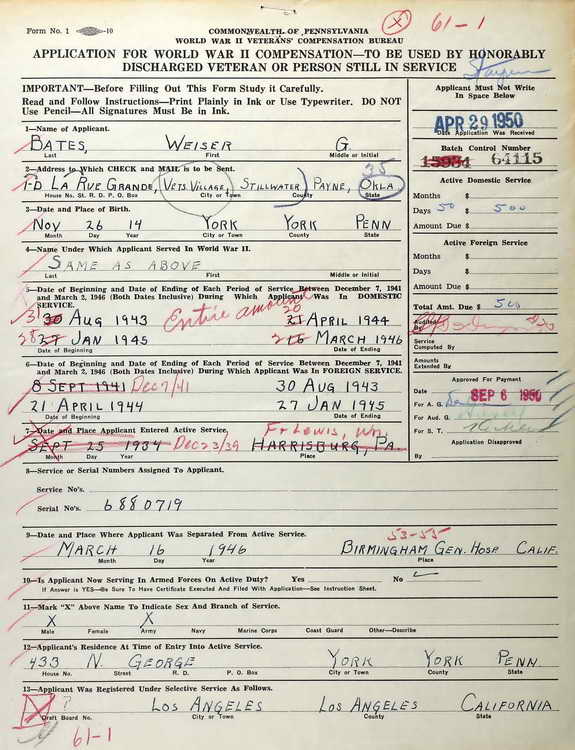 Form No. 1 -10
COMMONWEALTH OF PENNSYLVANIA
WORLD WAR II VETERANS' COMPENSATION BUREAU
X 61-1
APPLICATION FOR WORLD WAR II COMPENSATION—TO BE USED BY HONORABLY
DISCHARGED VETERAN OR PERSON STILL IN SERVICE
IMPORTANT—Before Filling Out This Form Study it Carefully.
Read and Follow Instructions—Print Plainly in Ink or Use Typewriter. DO NOT
Use Pencil—All Signatures Must Be in Ink.
Applicant Must Not Write
In Space Below
APR 29 1950
Date Application Was Received
Batch Control Number
64115
Active Domestic Service
Months $
Days 50 $ 500
Amount Due $
Active Foreign Service
Months $
Days $
Amount Due $
Total Amt. Due $ 500
Audited
By
Service
Computed By
Amounts
Extended By
Approved For Payment
Date SEP 6 1950
For A. G.
For Aud. G.
For S. T.
Application Disapproved
By
1—Name of Applicant.
BATES, WEISER G.
Last First Middle or Initial
2—Address to Which CHECK and MAIL is to be Sent.
35
1-D LA RUE GRANDE, VETS VILLAGE, STILLWATER, PAYNE, OKLA
House No. St. R. D. P. O. Box City or Town County State
3—Date and Place of Birth.
NOV 26 14 YORK YORK PENN
Month Day Year City or Town County State
4—Name Under Which Applicant Served In World War II.
SAME AS ABOVE
Last First Middle or Initial
5—Date of Beginning and Date of Ending of Each Period of Service Between December 7, 1941
and March 2, 1946 (Both Dates Inclusive) During Which Applicant Was In DOMESTIC
SERVICE.
Entire amount
31 30 AUG 1943 20 21 APRIL 1944
28 27 JAN 1945 2 16 MARCH 1946
Date of Beginning Date of Ending
6—Date of Beginning and Date of Ending of Each Period of Service Between December 7, 1941
and March 2, 1946 (Both Dates Inclusive) During Which Applicant Was In FOREIGN SERVICE.
8 SEPT 1941 Dec 7/41 30 AUG 1943
21 APRIL 1944 27 JAN 1945
Date of Beginning Date of Ending
7—Date and Place Applicant Entered Active Service.
Ft Lewis, Wn.
SEPT 25 1934 Dec 23/39 HARRISBURG, PA
Month Day Year Place
8—Service or Serial Numbers Assigned To Applicant.
Service No's.
Serial No's. 6880719
9—Date and Place Where Applicant Was Separated From Active Service.
53-55
MARCH 16 1946 BIRMINGHAM GEN. HOSP CALIF.
Month Day Year Place
10—Is Applicant Now Serving In Armed Forces On Active Duty? Yes No
If Answer is YES—Be Sure To Have Certificate Executed And Filed With Application—See Instruction Sheet.
11—Mark "X" Above Name To Indicate Sex And Branch of Service.
X X
Male Female Army Navy Marine Corps Coast Guard Other—Describe
12—Applicant's Residence At Time of Entry Into Active Service.
433 N. GEORGE YORK YORK PENN.
House No. Street R. D. P. O. Box City or Town County State
13—Applicant Was Registered Under Selective Service As Follows.
? LOS ANGELES LOS ANGELES CALIFORNIA
Draft Board No. City or Town County State
61-1